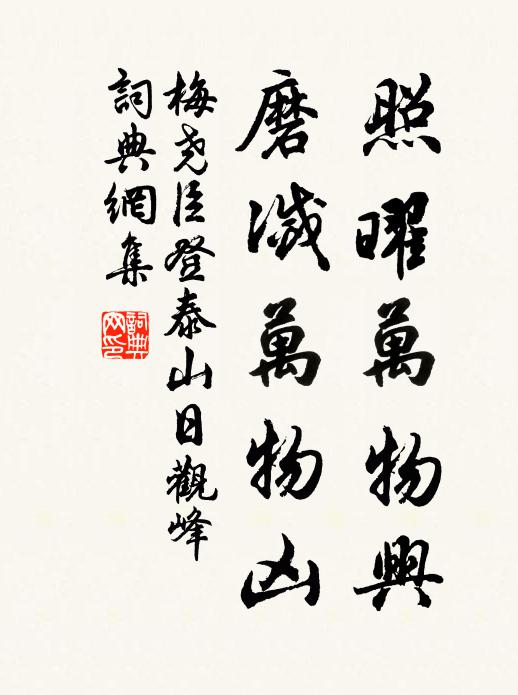 照曜萬物興
磨滅萬物凶
梅堯臣登泰山日觀峰
詞典網集
詞典網印